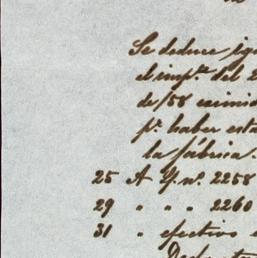 Se deduce igu
el impte. del 2
de/58 eximid
pr. haber esta
la fábrica.
25 A Y. no. 2258
29 " " " 2260
31 " efectivo